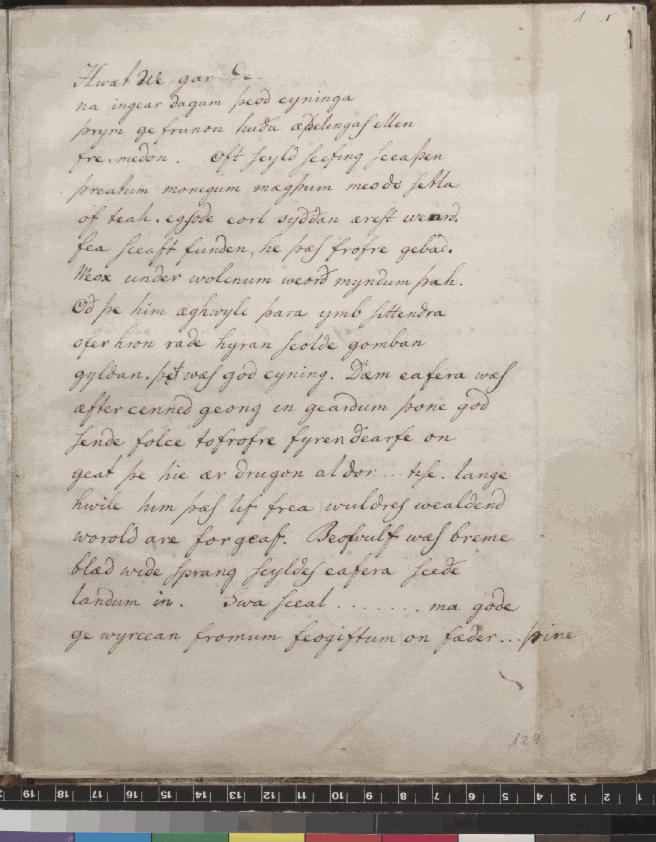 1
Hwæt We gar De-
na ingear dagum þeod cyninga
þrym ge frunon huða æþelingas ellen
fre. medon. Oft scyld scefing sceaþen
þreatum monegum mægþum meodo setla
of teah. egsode eorl syððan ærest weard
fea sceaft funden, he þæs frofre gebad.
Weox under wolcnum weorð myndum þah.
Oð þe him æghwylc þara ymb sittendra
ofer hron rade hyran scolde gomban
gyldan. þet wæs god cyning. Ðæm eafera wæs
æfter cenned geong in geardum þone god
sende folce tofrofre fyren ðearfe on
geat þe hie ær drugon aldor... se. lange
hwile him þæs lif frea wuldres wealdend
worold are forgeaf. Beowulf wæs breme
blæd wide sprang scyldes eafera scede
landum in. Swa sceal ....... ma gode
ge wyrcean fromum feogiftum on fæder... þrine
129
19 18 17 16 15 14 13 12 11 10 9 8 7 6 5 4 3 2 1